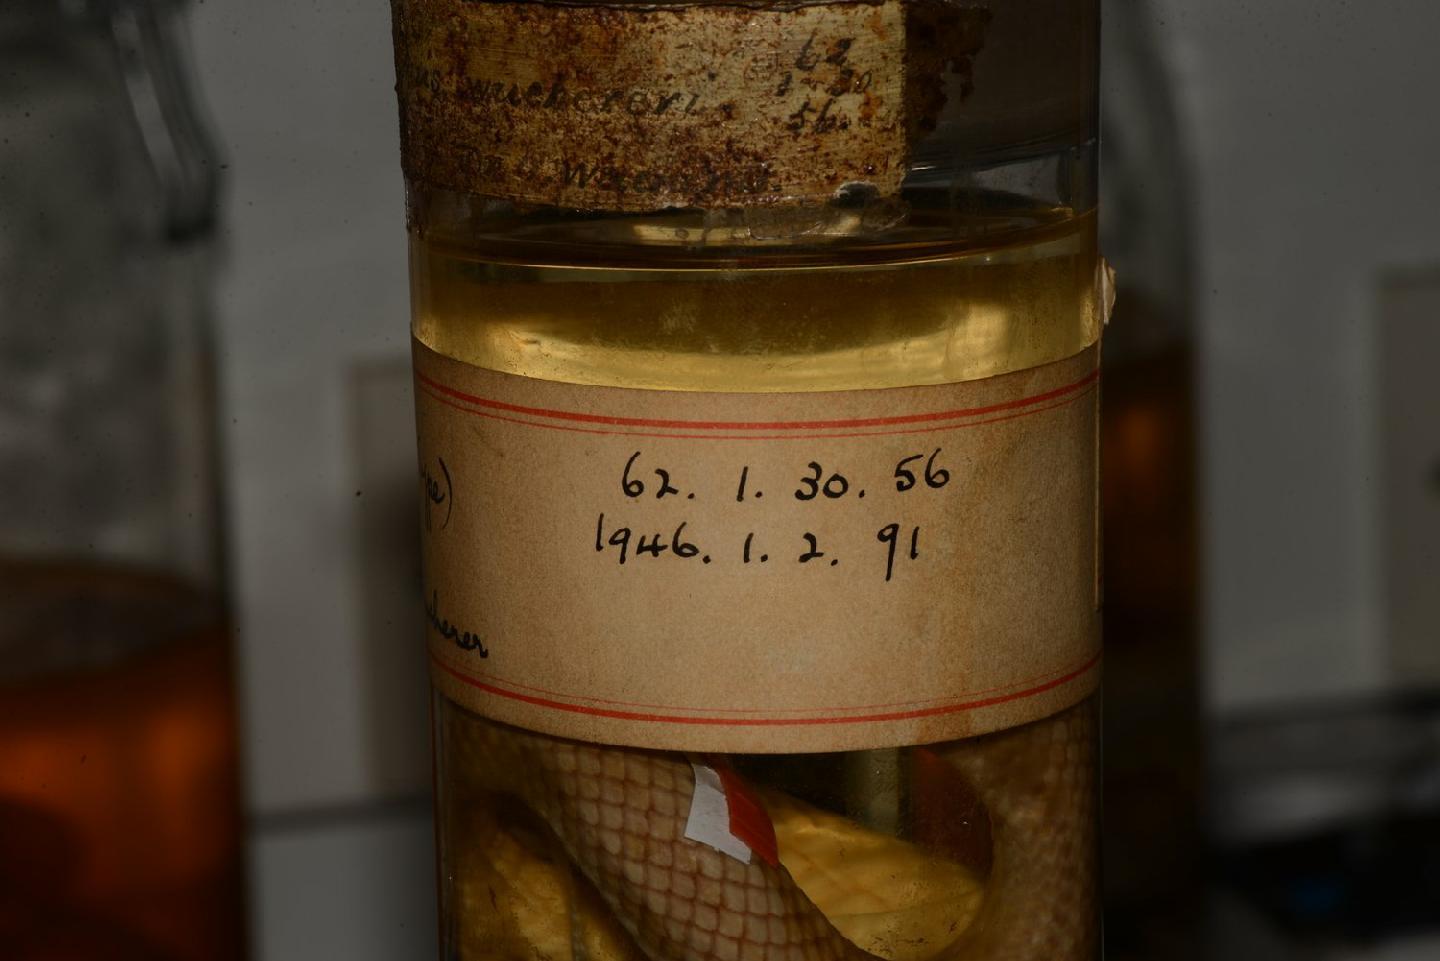 wuchereri. 62
1-30
56.
Dr. Wucherer.
62. 1. 30. 56
1946. 1. 2. 91
ype)
cherer